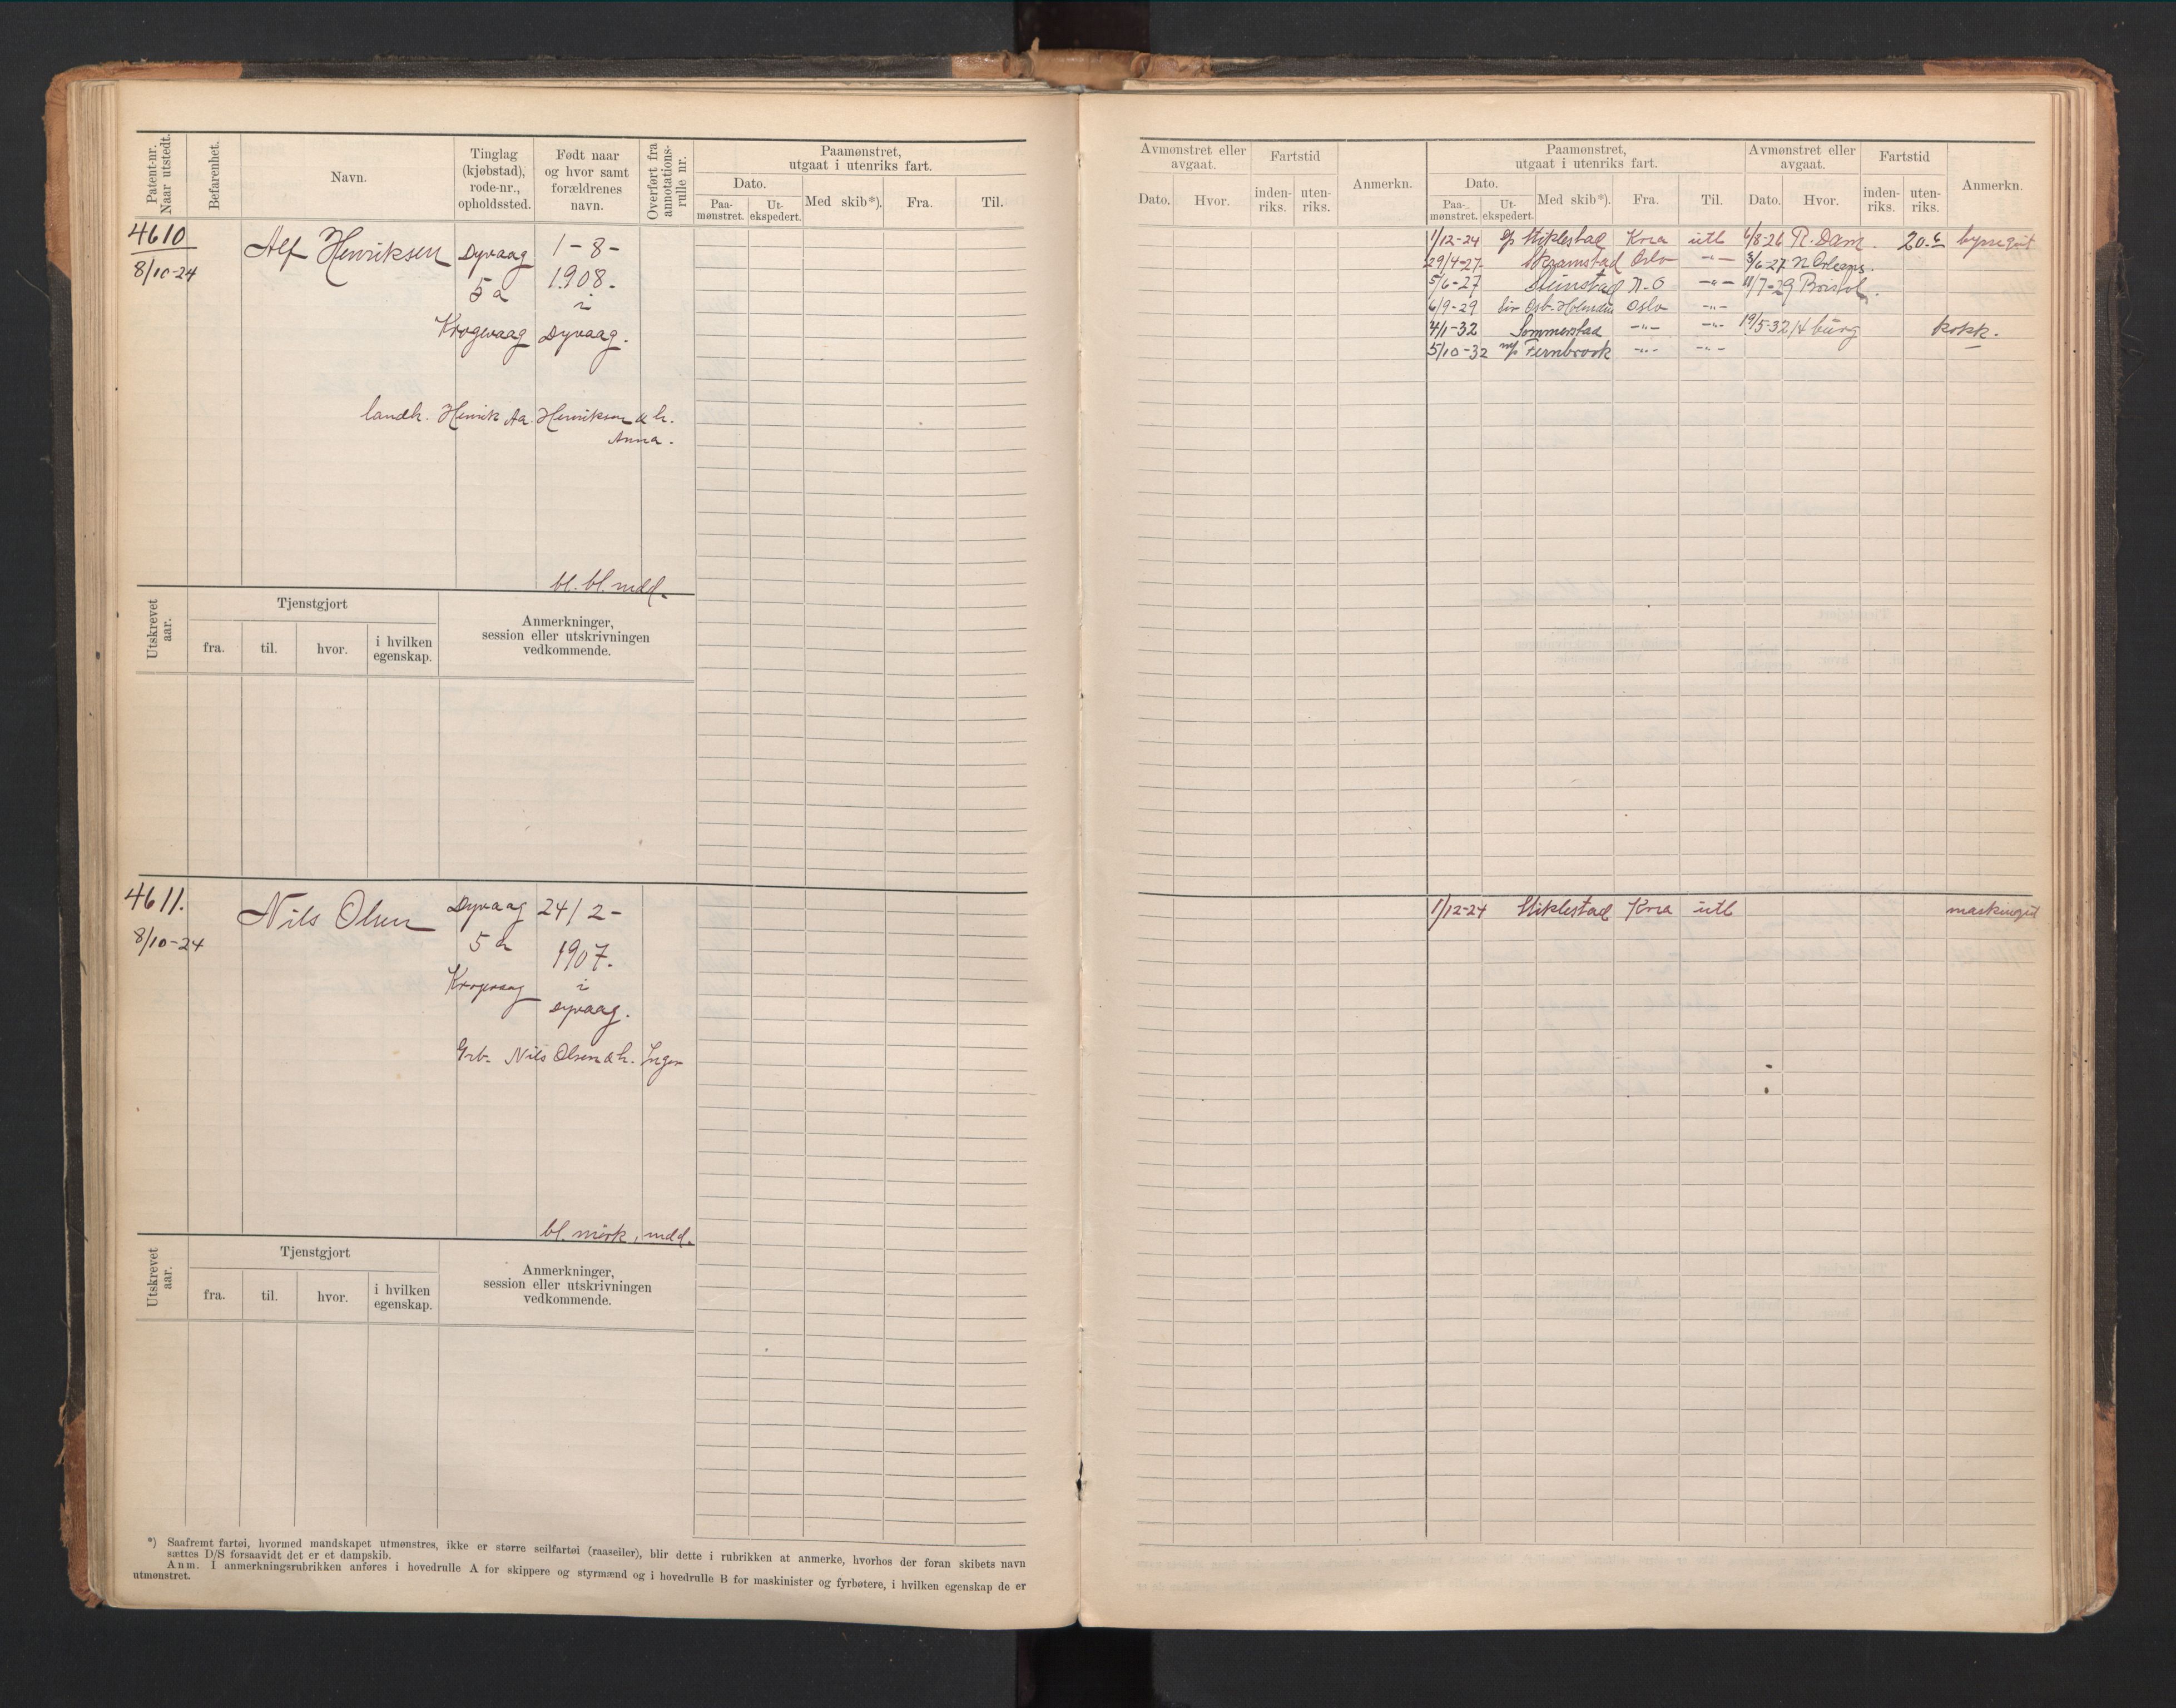 Patent-nr. Naar utstedt.
Befarenhet.
Navn.
Tinglag (kjøbstad), rode-nr., opholdssted.
Født naar og hvor samt forældrenes navn.
Overført fra annotations-rulle nr.
Paamønstret, utgaat i utenriks fart.
Dato.
Paa-mønstret.
Ut-ekspedert.
Med skib*).
Fra.
Til.
4610
8/10-24
Alf Henriksen
Dyvaag
5 a
Krogevaag
1-8-
1908.
i
Dyvaag.
landh. Henrik Aa. Henriksen & h.
Anna.
bl. bl. mdd.
Utskrevet aar.
Tjenstgjort
fra.
til.
hvor.
i hvilken egenskap.
Anmerkninger, session eller utskrivningen vedkommende.
4611.
8/10-24
Nils Olsen
Dyvaag
5 a
Krogevaag
24/2-
1907.
i
Dyvaag.
Grb. Nils Olsen & h. Inger
bl. mørk, mdd.
Utskrevet aar.
Tjenstgjort
fra.
til.
hvor.
i hvilken egenskap.
Anmerkninger, session eller utskrivningen vedkommende.
*) Saafremt fartøi, hvormed mandskapet utmønstres, ikke er større seilfartøi (raaseiler), blir dette i rubrikken at anmerke, hvorhos der foran skibets navn
sættes D/S forsaavidt det er et dampskib.
Anm. I anmerkningsrubrikken anføres i hovedrulle A for skippere og styrmænd og i hovedrulle B for maskinister og fyrbøtere, i hvilken egenskap de er
utmønstret.
Avmønstret eller avgaat.
Dato.
Hvor.
Fartstid
inden-riks.
uten-riks.
Anmerkn.
Paamønstret, utgaat i utenriks fart.
Dato.
Paa-mønstret.
Ut-ekspedert.
Med skib*).
Fra.
Til.
Avmønstret eller avgaat.
Dato.
Hvor.
Fartstid
inden-riks.
uten-riks.
Anmerkn.
1/12-24 Stiklestad Kria utl 6/8-26 R. Dam. 20.6 byssegut
29/4-27 Skramstad Oslo -"- 3/6-27 N Orleans.
5/6-27 Steinstad N.O -"- 11/7-29 Bristol.
6/9-29 Oslo -"-
4/1-32 Sommerstad -"- -"- 19/5-32 Hburg kokk.
5/10-32 m/s Fernbrook -"- -"-
1/12-24 Stiklestad Kria utl maskingut